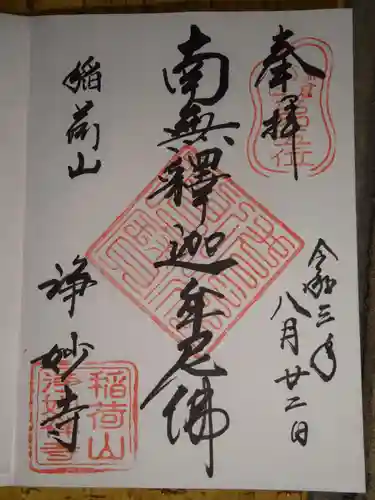 奉拝
令和三年
八月廿二日
南無釋迦牟尼佛
稲荷山
浄妙寺
稲荷山
浄妙寺